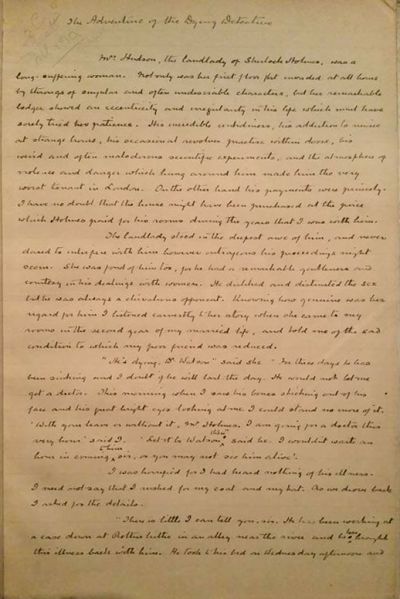 The Adventure of the Dying Detective
Mrs Hudson, the landlady of Sherlock Holmes, was a
long-suffering woman. Not only was her first floor flat invaded at all hours
by throngs of singular and often undesirable characters, but her remarkable
lodger showed an eccentricity and irregularity in his life which must have
sorely tried her patience. His incredible untidiness, his addiction to music
at strange hours, his occasional revolver practice within doors, his
weird and often malodorous scientific experiments, and the atmosphere of
violence and danger which hung around him made him the very
worst tenant in London. On the other hand his payments were princely.
I have no doubt that the house might have been purchased at the price
which Holmes paid for his rooms during the years that I was with him.
The landlady stood in the deepest awe of him, and never
dared to interfere with him however outrageous his proceedings might
seem. She was fond of him too, for he had a remarkable gentleness and
courtesy in his dealings with women. He disliked and distrusted the sex
but he was always a chivalrous opponent. Knowing how genuine was her
regard for him I listened earnestly to her story when she came to my
rooms in the second year of my married life, and told me of the sad
condition to which my poor friend was reduced.
"He's dying, Dr Watson" said she "For three days he has
been sinking and I doubt if he will last the day. He would not let me
get a doctor. This morning when I saw his bones sticking out of his
face and his great bright eyes looking at me I could stand no more of it.
'With your leave or without it, Mr Holmes, I am going for a doctor this
very hour' said I. 'Let it be Watson, then' said he. I wouldn't waste an
hour in coming to him, sir, or you may not see him alive".
I was horrified for I had heard nothing of his illness.
I need not say that I rushed for my coat and my hat. As we drove back
I asked for the details.
"There is little I can tell you, sir. He has been working at
a case down at Rotherhithe in an alley near the river and he has brought
this illness back with him. He took to his bed on Wednesday afternoon and